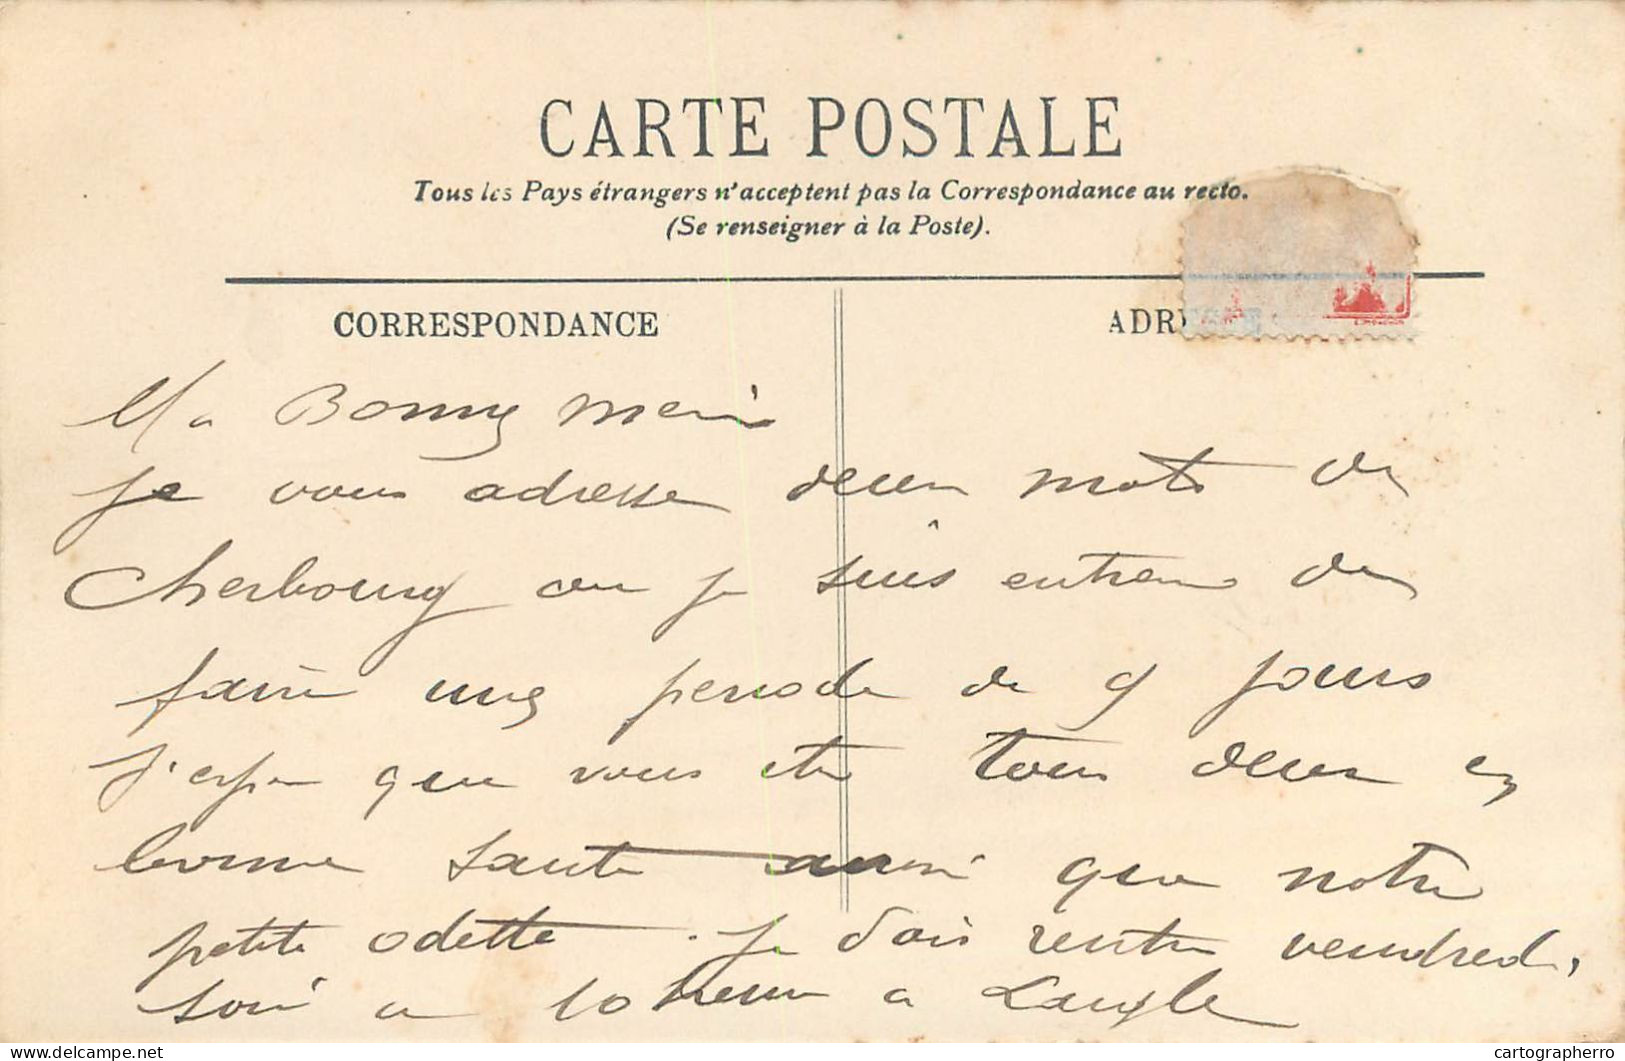 CARTE POSTALE
Tous les Pays étrangers n'acceptent pas la Correspondance au recto.
(Se renseigner à la Poste).
CORRESPONDANCE
ADRESSE
Ma Bonne
je vous adresse deux mots de
Cherbourg ou je suis entrain de
faire une periode de 9 jours
J'espere que vous ete tous deux en
bonne sante aussi que notre
petite odette. je dois rentre vendredi
soir a 10 heure a Laigle
delcampe.net
cartographerro